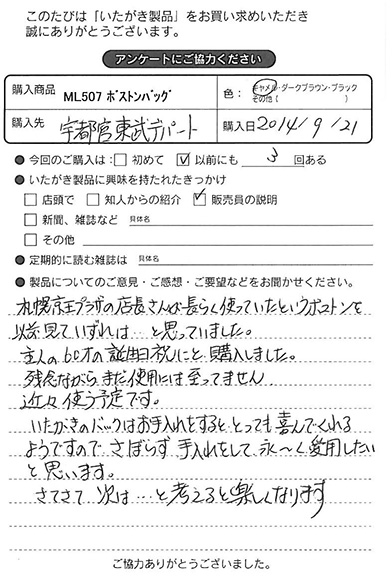 このたびは「いたがき製品」をお買い求めいただき
誠にありがとうございます。
アンケートにご協力ください
購入商品 ML507 ボストンバッグ
色： キャメル・ダークブラウン・ブラック
その他（ ）
購入先 宇都宮東武デパート
購入日 2014/9/21
● 今回のご購入は：□ 初めて ☑ 以前にも 3 回ある
● いたがき製品に興味を持たれたきっかけ
□ 店頭で □ 知人からの紹介 ☑ 販売員の説明
□ 新聞、雑誌など 具体名
□ その他
● 定期的に読む雑誌は 具体名
● 製品についてのご意見・ご感想・ご要望などをお聞かせください。
札幌京王プラザの店長さんが長らく使っていたというボストンを
以前見ていずれは…と思っていました。
主人の60才の誕生日祝にと購入しました。
残念ながらまだ使用には至ってません
近々使う予定です。
いたがきのバッグはお手入れをするととっても喜んでくれる
ようですので さぼらず手入れをして永〜く愛用したい
と思います。
さてさて 次は…と考えると楽しくなります
ご協力ありがとうございました。